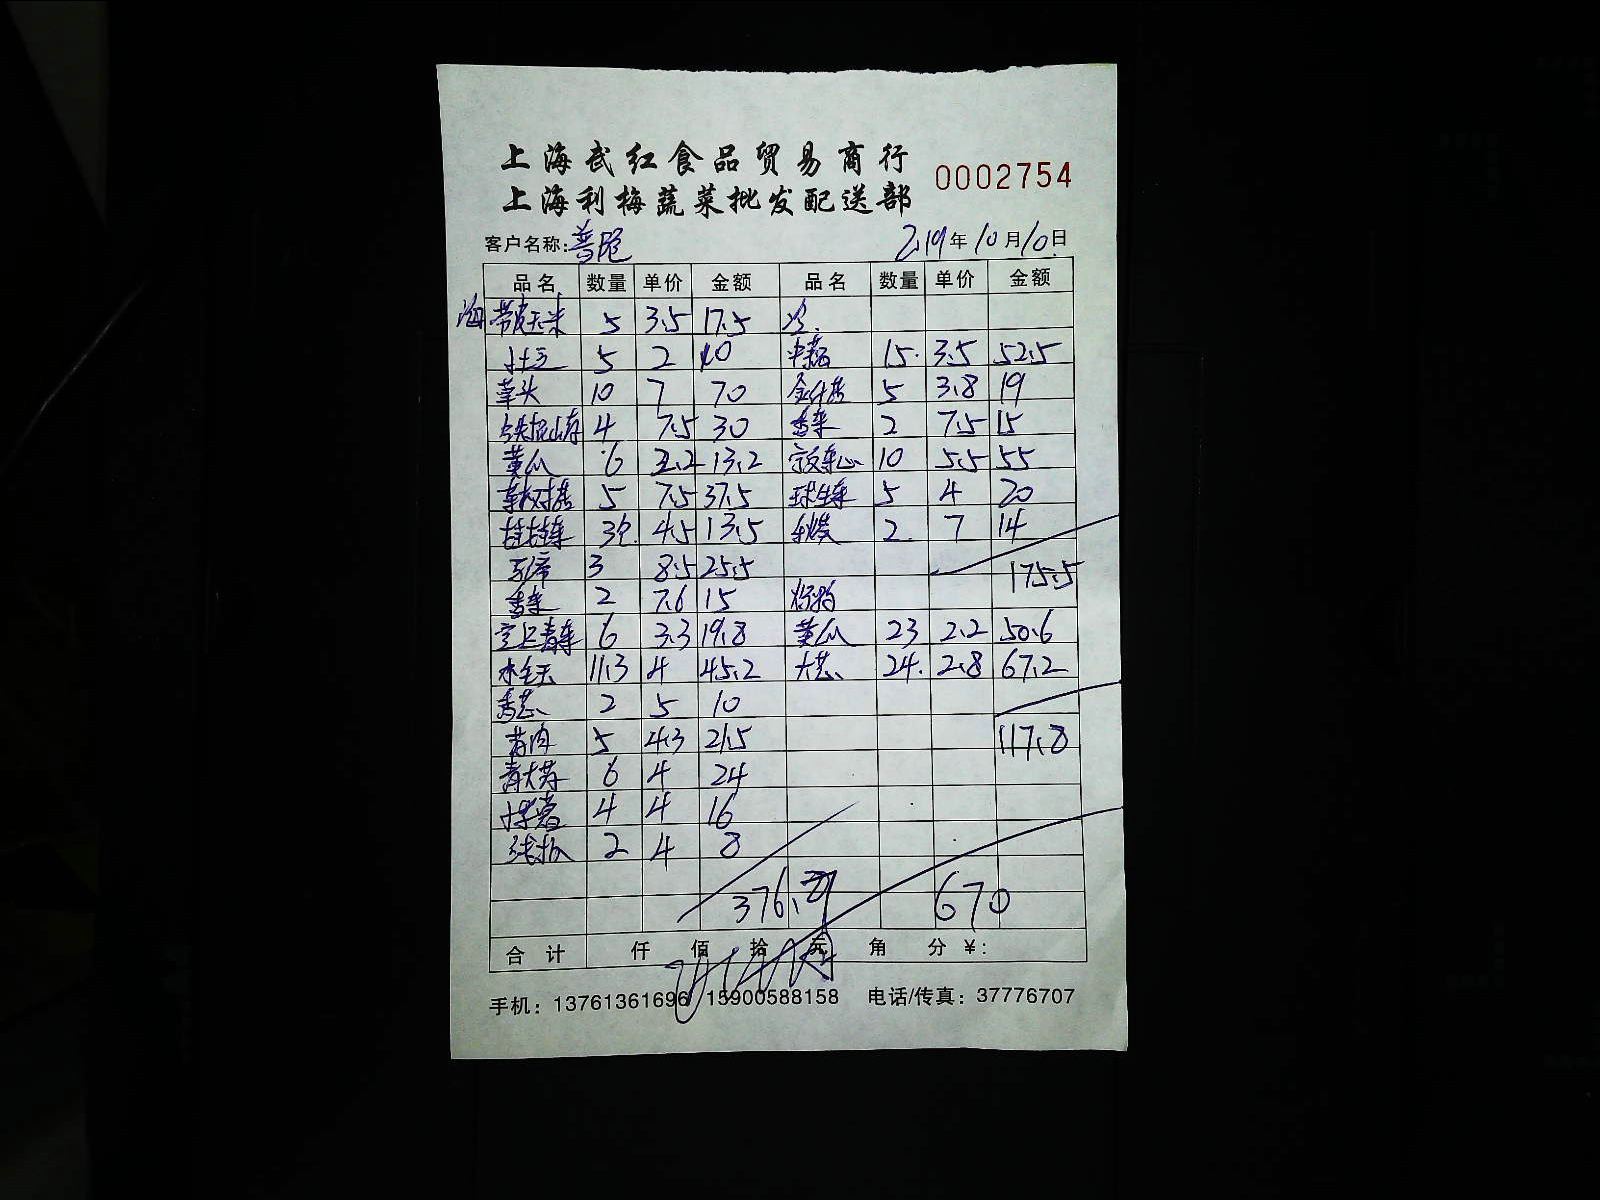 上海武红食品贸易商行
0002754
上海利梅蔬菜批发配送部
客户名称:普陀 2019年10月10日
品名 数量 单价 金额 品名 数量 单价 金额
海 带皮玉米 5 3.5 17.5 冷.
土豆 5 2 10 中藕 15. 3.5 52.5
草头 10 7 70 金针菇 5 3.8 19
铁棍山药 4 7.5 30 香菜 2 7.5 15
黄瓜 6 2.2 13.2 菜心 10 5.5 55
5 7.5 37.5 球生菜 5 4 20
4.5 13.5 2. 7 14
3 8.5 25.5 175.5
香菜 2 7.6 15
青菜 6 3.3 19.8 黄瓜 23 2.2 50.6
11.3 4 45.2 大葱 24. 2.8 67.2
香葱 2 5 10
5 4.3 21.5 117.8
青大蒜 6 4 24
4 4 16
2 4 8
376.7 670
合计 仟 佰 拾 元 角 分 ¥:
手机: 13761361696 15900588158 电话/传真: 37776707